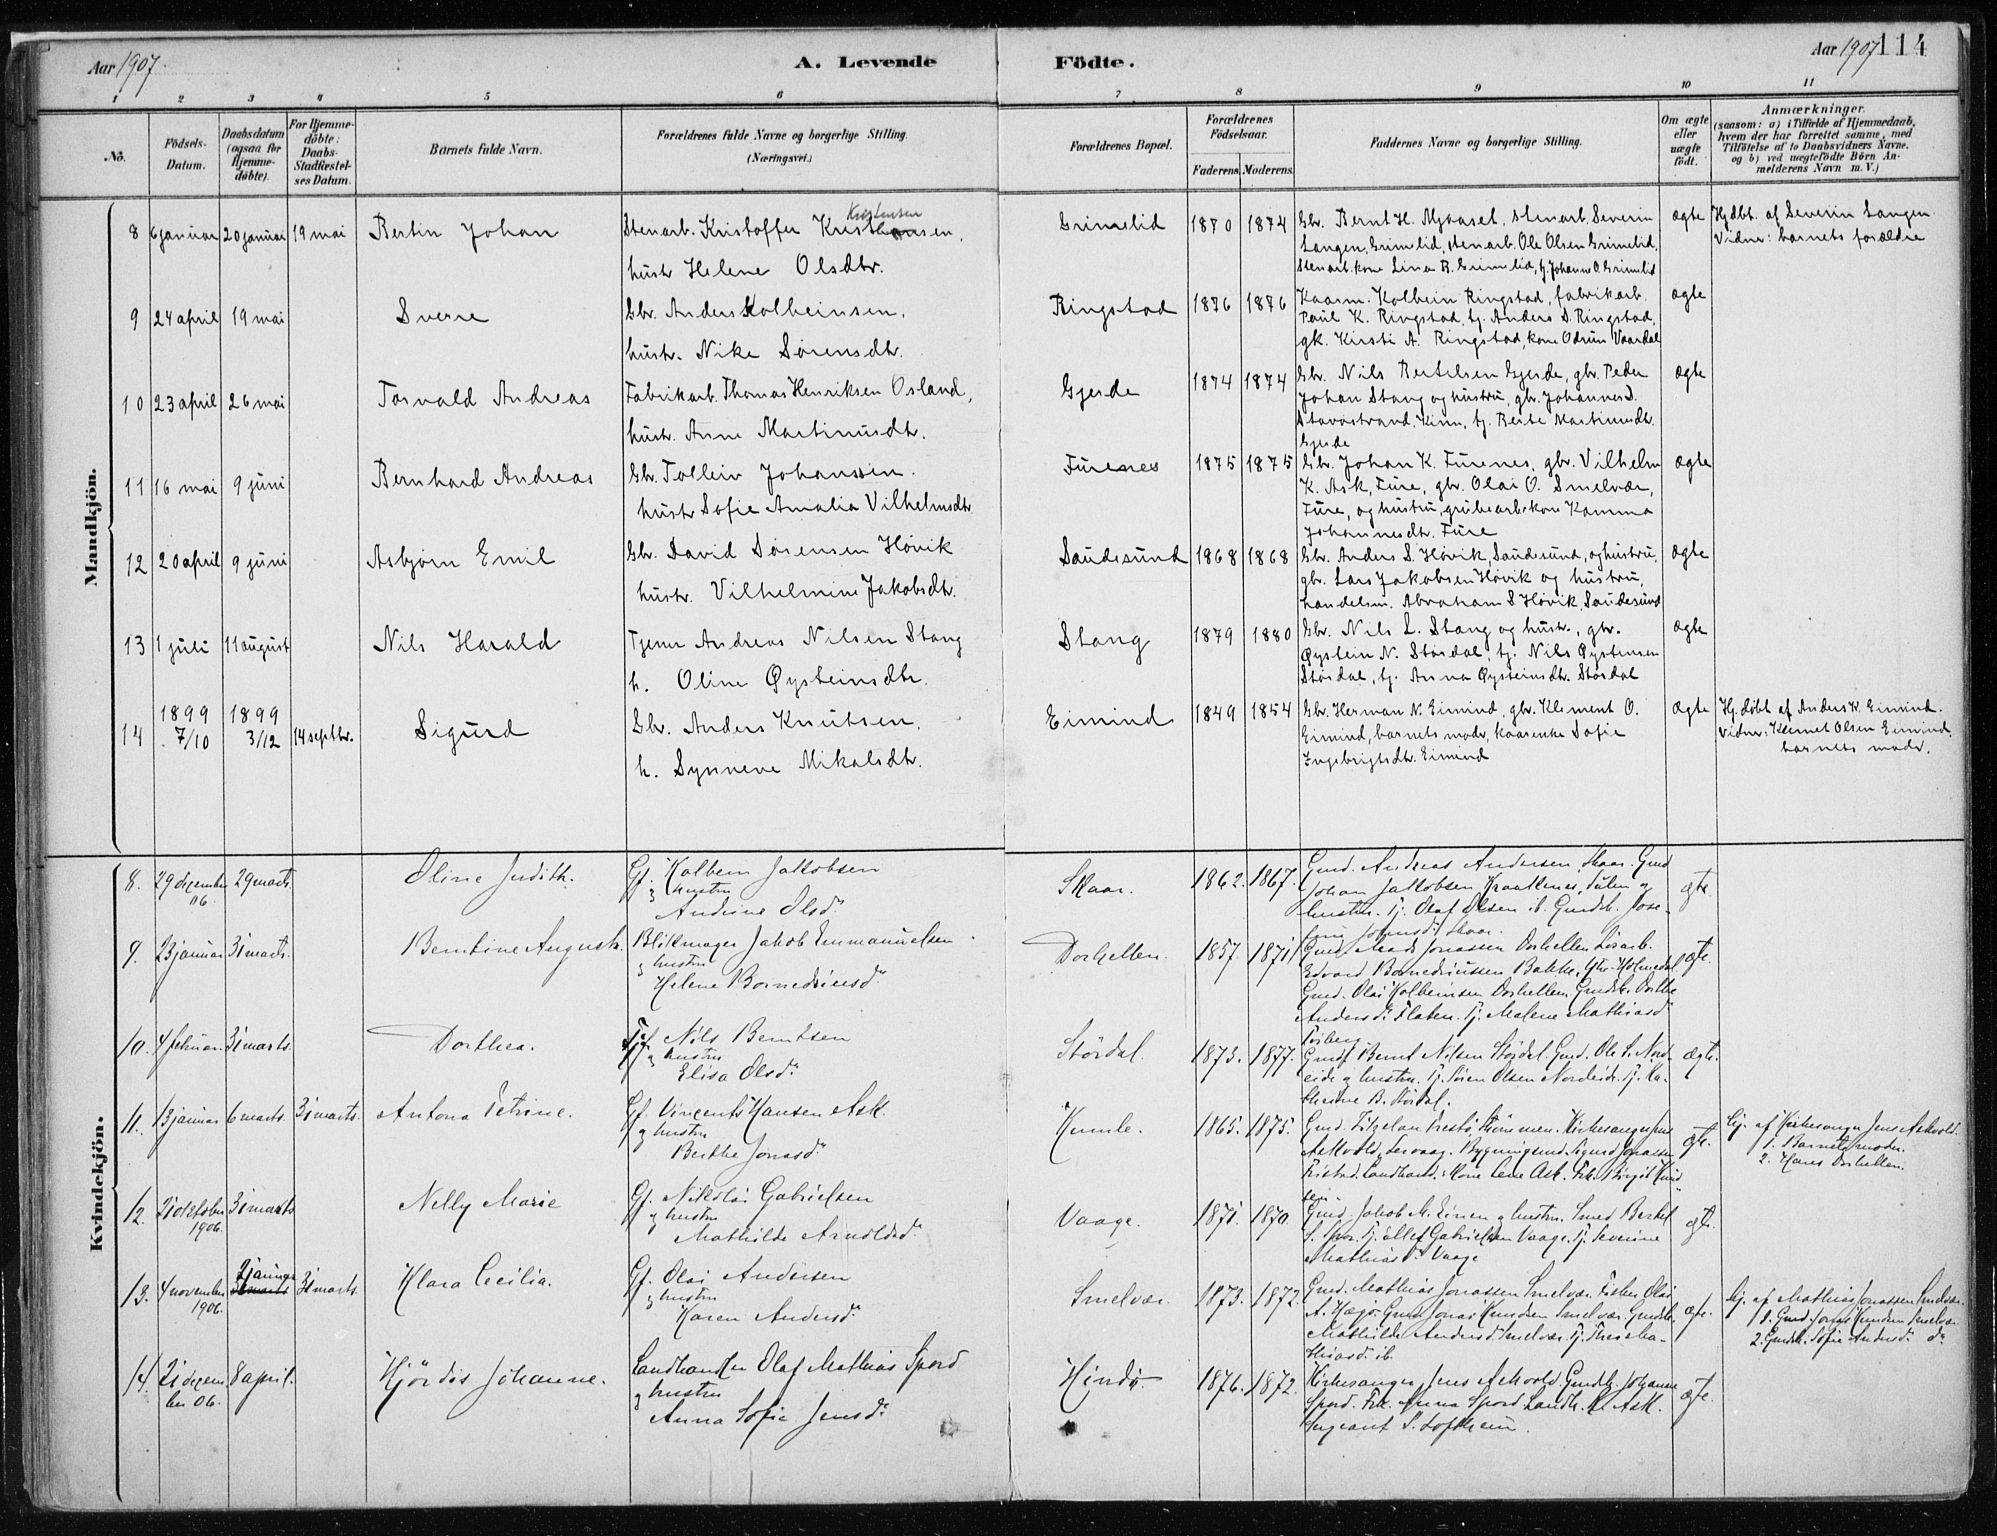 Aar 1907.
A. Levende Födte.
Aar 1907 114
1 2 3 4 5 6 7 8 9 10 11
No.
Födsels-
Datum.
Daabsdatum
(ogsaa for
Hjemme-
döbte).
For Hjemme-
döbte:
Daabs-
Stadfæstel-
ses Datum.
Barnets fulde Navn.
Forældrenes fulde Navne og borgerlige Stilling.
(Næringsvei.)
Forældrenes Bopæl.
Forældrenes
Födselsaar.
Faderens. Moderens.
Faddernes Navne og borgerlige Stilling.
Om ægte
eller
uægte
födt.
Anmærkninger.
(saasom: a) i Tilfælde af Hjemmedaab,
hvem der har forrettet samme, med
Tilföielse af to Daabsvidners Navne.
og b) ved uægtefödte Börn An-
melderens Navn m. V.)
Mandkjön.
8 6 januar 20 januar 19 mai Bertin Johan
Stenarb. Kristoffer Kristiansen, Kristensen
hustr Helene Olsdtr.
Grimelid 1870 1874
Gbr. Bernt H. Myaaset, stenarb. Severin
Langen, Grimelid, stenarb. Ole Olsen Grimelid,
Stenarb.kone Lina R. Grimelid, tj. Johanne O. Grimelid
ægte
Hj.døbt. af Severin Langen.
Vidner: barnets forældre
9 24 april 19 mai Sverre
Gbr. Anders Kolbeinsen,
hustr. Nike Sørensdtr.
Ringstad 1876 1876
Kaarm. Kolbein Ringstad, fabrikarb.
Paul K. Ringstad, tj. Anders S. Ringstad,
gk. Kirsti A. Ringstad, kone Odrun Vaardal
ægte
10 23 april 26 mai Torvald Andreas
Fabrikarb. Thomas Henriksen Osland,
hustr. Anne Martinusdtr.
Gjerde 1874 1874
Gbr. Nils Bertelsen Gjerde, gbr. Peder
Johan Stang og hustru, gbr. Johannes J.
Stavøstrand, Kinn, tj. Berte Martinusdtr.
Gjerde
ægte
11 16 mai 9 juni Bernhard Andreas
Gbr. Tolleiv Johanssen.
hustr Sofie Amalia Vilhelmsdtr
Furenes 1875 1875
Gbr. Johan K. Furenes, gbr. Vilhelm
K. Ask, Fure, gbr. Olai O. Smelvær,
Fure, og hustru, grubearb.kone Kamma
Johannesdtr. Fure
ægte
12 20 april 9 juni Asbjørn Emil
Gbr. David Sørensen Høvik
hustr. Vilhelmine Jakobsdtr.
Saudesund 1868 1868
Gbr. Anders S. Høvik, Saudesund, og hustru,
gbr. Lars Jakobsen Høvik og hustru,
handelsm. Abraham S. Høvik, Saudesund
ægte
13 1 juli 11 august Nils Harald
Tjener Andreas Nilsen Stang
h. Oline Øysteinsdtr.
Stang 1879 1880
Gbr. Nils L. Stang og hustr., gbr.
Øystein N. Størdal, tj. Nils Øysteinsen
Størdal, tj. Anna Øysteinsdtr. Størdal
ægte
14 1899 7/10 1899 3/12 14 septbr. Sigurd
Gbr. Anders Knutsen,
h. Synneve Mikalsdtr.
Eimind 1849 1854
Gbr. Herman N. Eimind, gbr. Klement O.
Eimind, barnets moder, kaarenke Sofie
Ingebrigtsdtr. Eimind
ægte
Hj. døbt af Anders K. Eimind.
Vidner: Klemet Olsen Eimind,
barnets moder.
Kvindekjön.
8. 29 december 06. 29 marts. Oline Judith.
Gf. Kolbein Jakobsen
og hustru
Andrine Olsdr
Skaar. 1862. 1867.
Gmd. Andreas Andersen Skaar. Gmd
Johan Jakobsen Kraakenes, Tulen og
hustru. Tj. Olaf Olsen ib. Gmdsk. Jose-
fine Johnsdr Skaar.
ægte.
9. 23 januar 31 marts. Berntine Auguste.
Blikmager Jakob Emmanuelsen
og hustru
Helene Bornedriusdr
Dorhellen. 1857. 1871
Gmd. Mads Jonassen Dorhellen Løsarb.
Edvard Bornedriussen Bakke, Ytr. Holmedal
Gmd. Olai Kolbeinsen Dorhellen Gmdsk. Dorthe
Andersdr Flaten. Tj. Malene Mathiasdr
ægte.
10. 4 februar. 31 marts. Dorthea.
Nils Berntsen
og hustru
Elisa Olsdr
Stórdal. 1873. 1877.
Gmd. Bernt Nilsen Stórdal. Gmd. Ole S. Nord-
eide og hustru. Tj. Sören Olsen Nordeide. Tj. Ka-
thrine B. Stórdal.
ægte.
11. 13 januar 6 marts. 31 marts. Antona Petrine.
Gf. Vincents Hansen Ask.
og hustru
Berthe Jonasdr
Humle. 1865. 1875.
ægte.
Hj. af Kirkesanger Jens Askvold.
1. Barnets moder.
2. Hans Dorhellen.
12. 21 oktober 1906. 31 marts Nelly Marie
Gf. Nikolai Gabrielsen
og hustru
Mathilde Arnoldsdr
Vaage. 1871. 1870.
Gmd. Jakob M. Einen og hustru. Smed Bertel
S. Spor. Tj. Ollef Gabrielsen Vaage. Tj. Severine
Mathiasdr Vaage
ægte.
13. 4 november 1906. 2 januar 31 marts. Klara Cecilia.
Gf. Olai Andersen
og hustru
Karen Andersdr
Smelvær. 1873. 1872.
Gmd. Mathias Jonassen Smelvær. Fisker Olai
A. Hægø. Gmd Jonas Knudsen Smelvær. Gmdsk.
Mathilde Andersdr Smelvær. Tj.
ægte.
Hj. af Mathias Jonassen Smelvær.
1. Gmd. Jonas Knudsen Smelvær.
2. Gmdsk. Sofie Andersdr do
14. 21 decem-
ber 06. 8 april. Hjördis Johanne.
Landhandler Olaf Mathias Spord
og hustru
Anna Sofie Jensdr
Hindø. 1876. 1872.
Kirkesanger Jens Askvold Gmdsk. Johanne
Spord. Frk. Anna Spord Landh. Ask.
Sergeant S. Loftheim.
ægte.